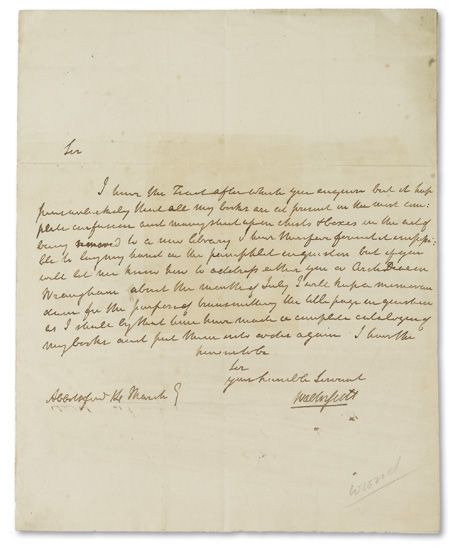 Sir
I have the Tract after which you enquire but it hap
pens unluckily that all my books are at present in the most com:
plete confusion and many shut up in chests & boxes in the act of
being removed to a new library I have therefore found it impossi
ble to lay my hand on the pamphlet in question but if you
will let me know how to address either you or Arch Deacon
Wrangham about the month of July I will keep a memoran
dum for the purpose of transmitting the title page in question
as I shall by that time have made a complete catalogue of
my books and put them into order again I have the
honour to be
Sir
your humble Servant
Abbotsford 14 March Walter Scott